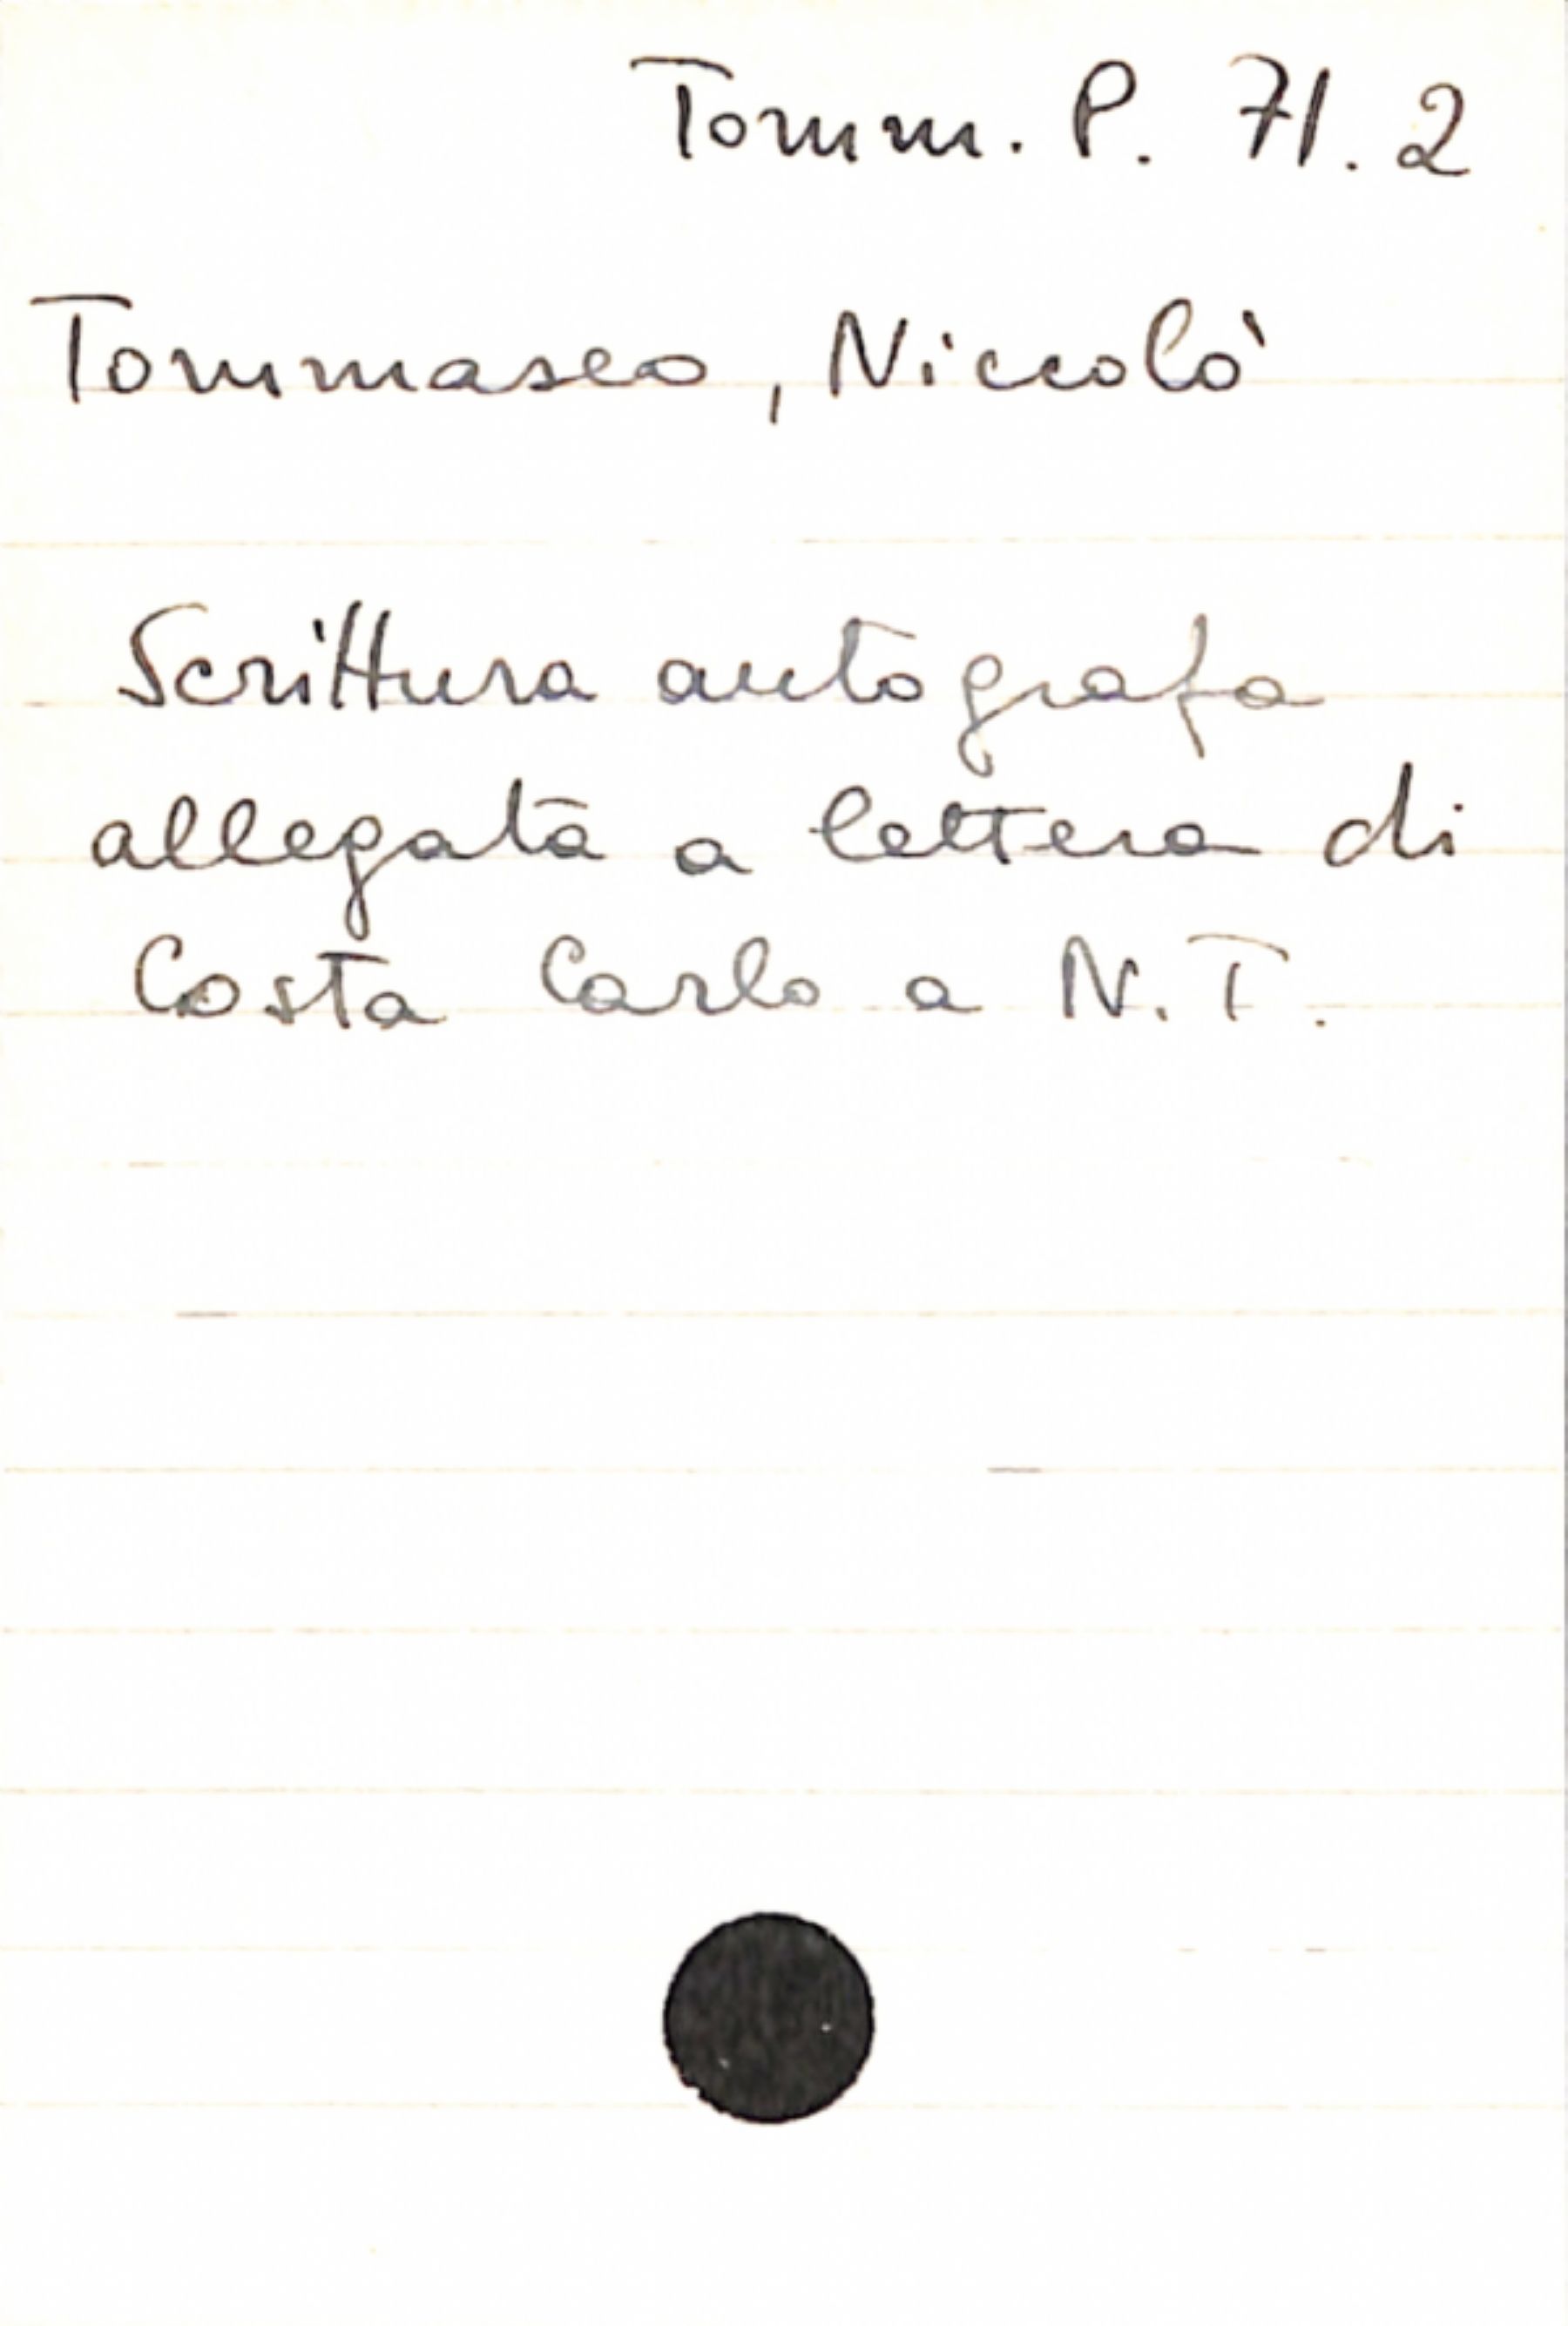 Tomm. P. 71. 2
Tommaseo, Niccolò
Scrittura autografa
allegata a lettera di
Costa Carlo a N. T.